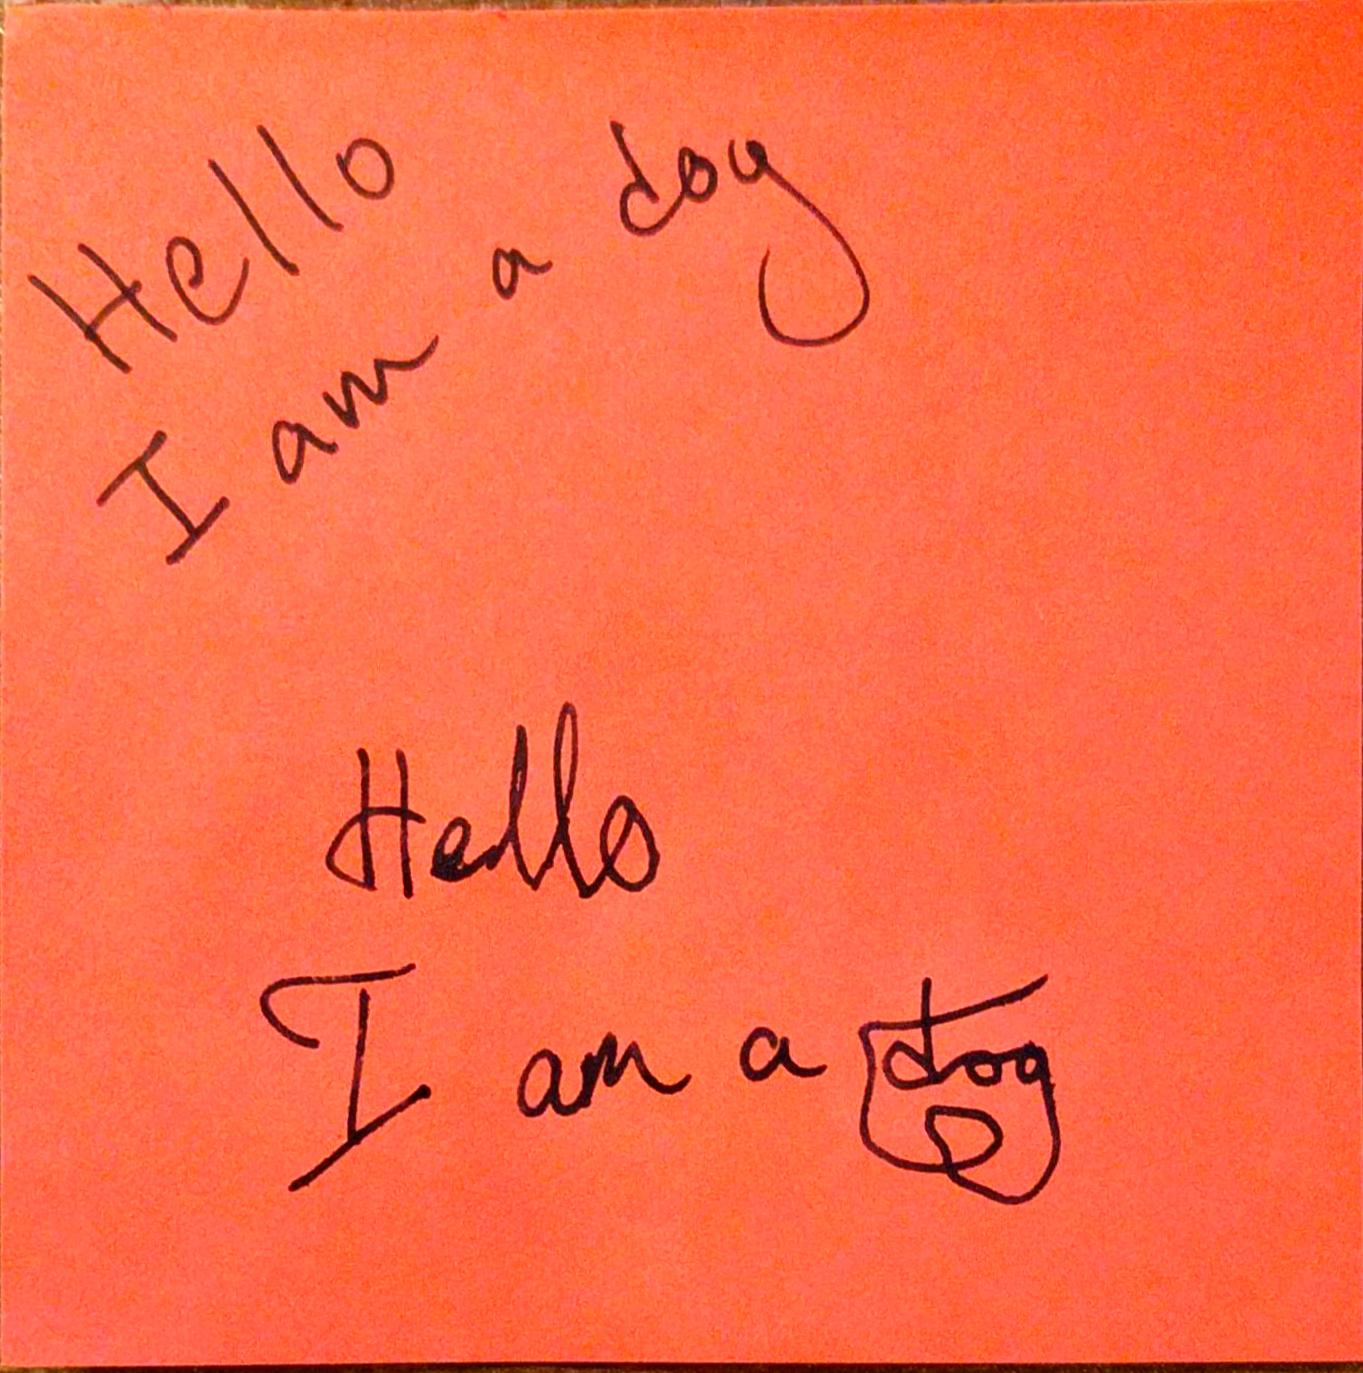 Hello
I am a dog
Hello
I am a dog